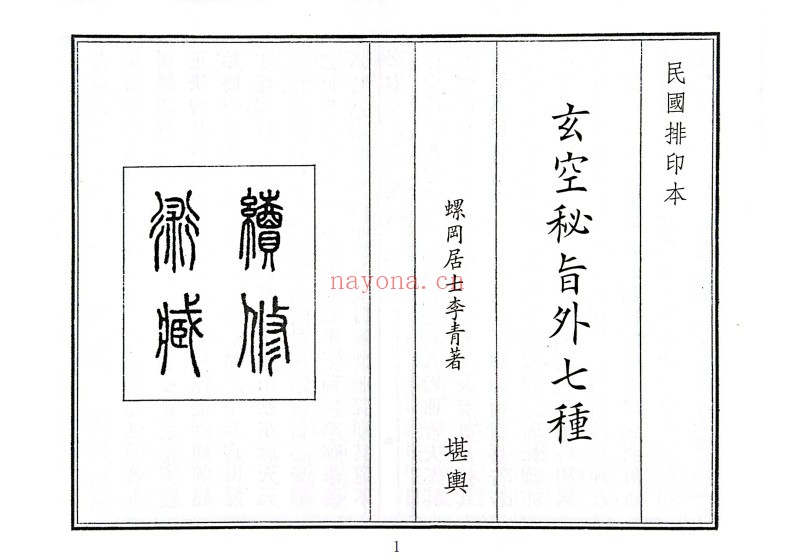 民國排印本
玄空秘旨外七種
螺岡居士李青著
堪輿
續修
術藏
nayona.cn
1